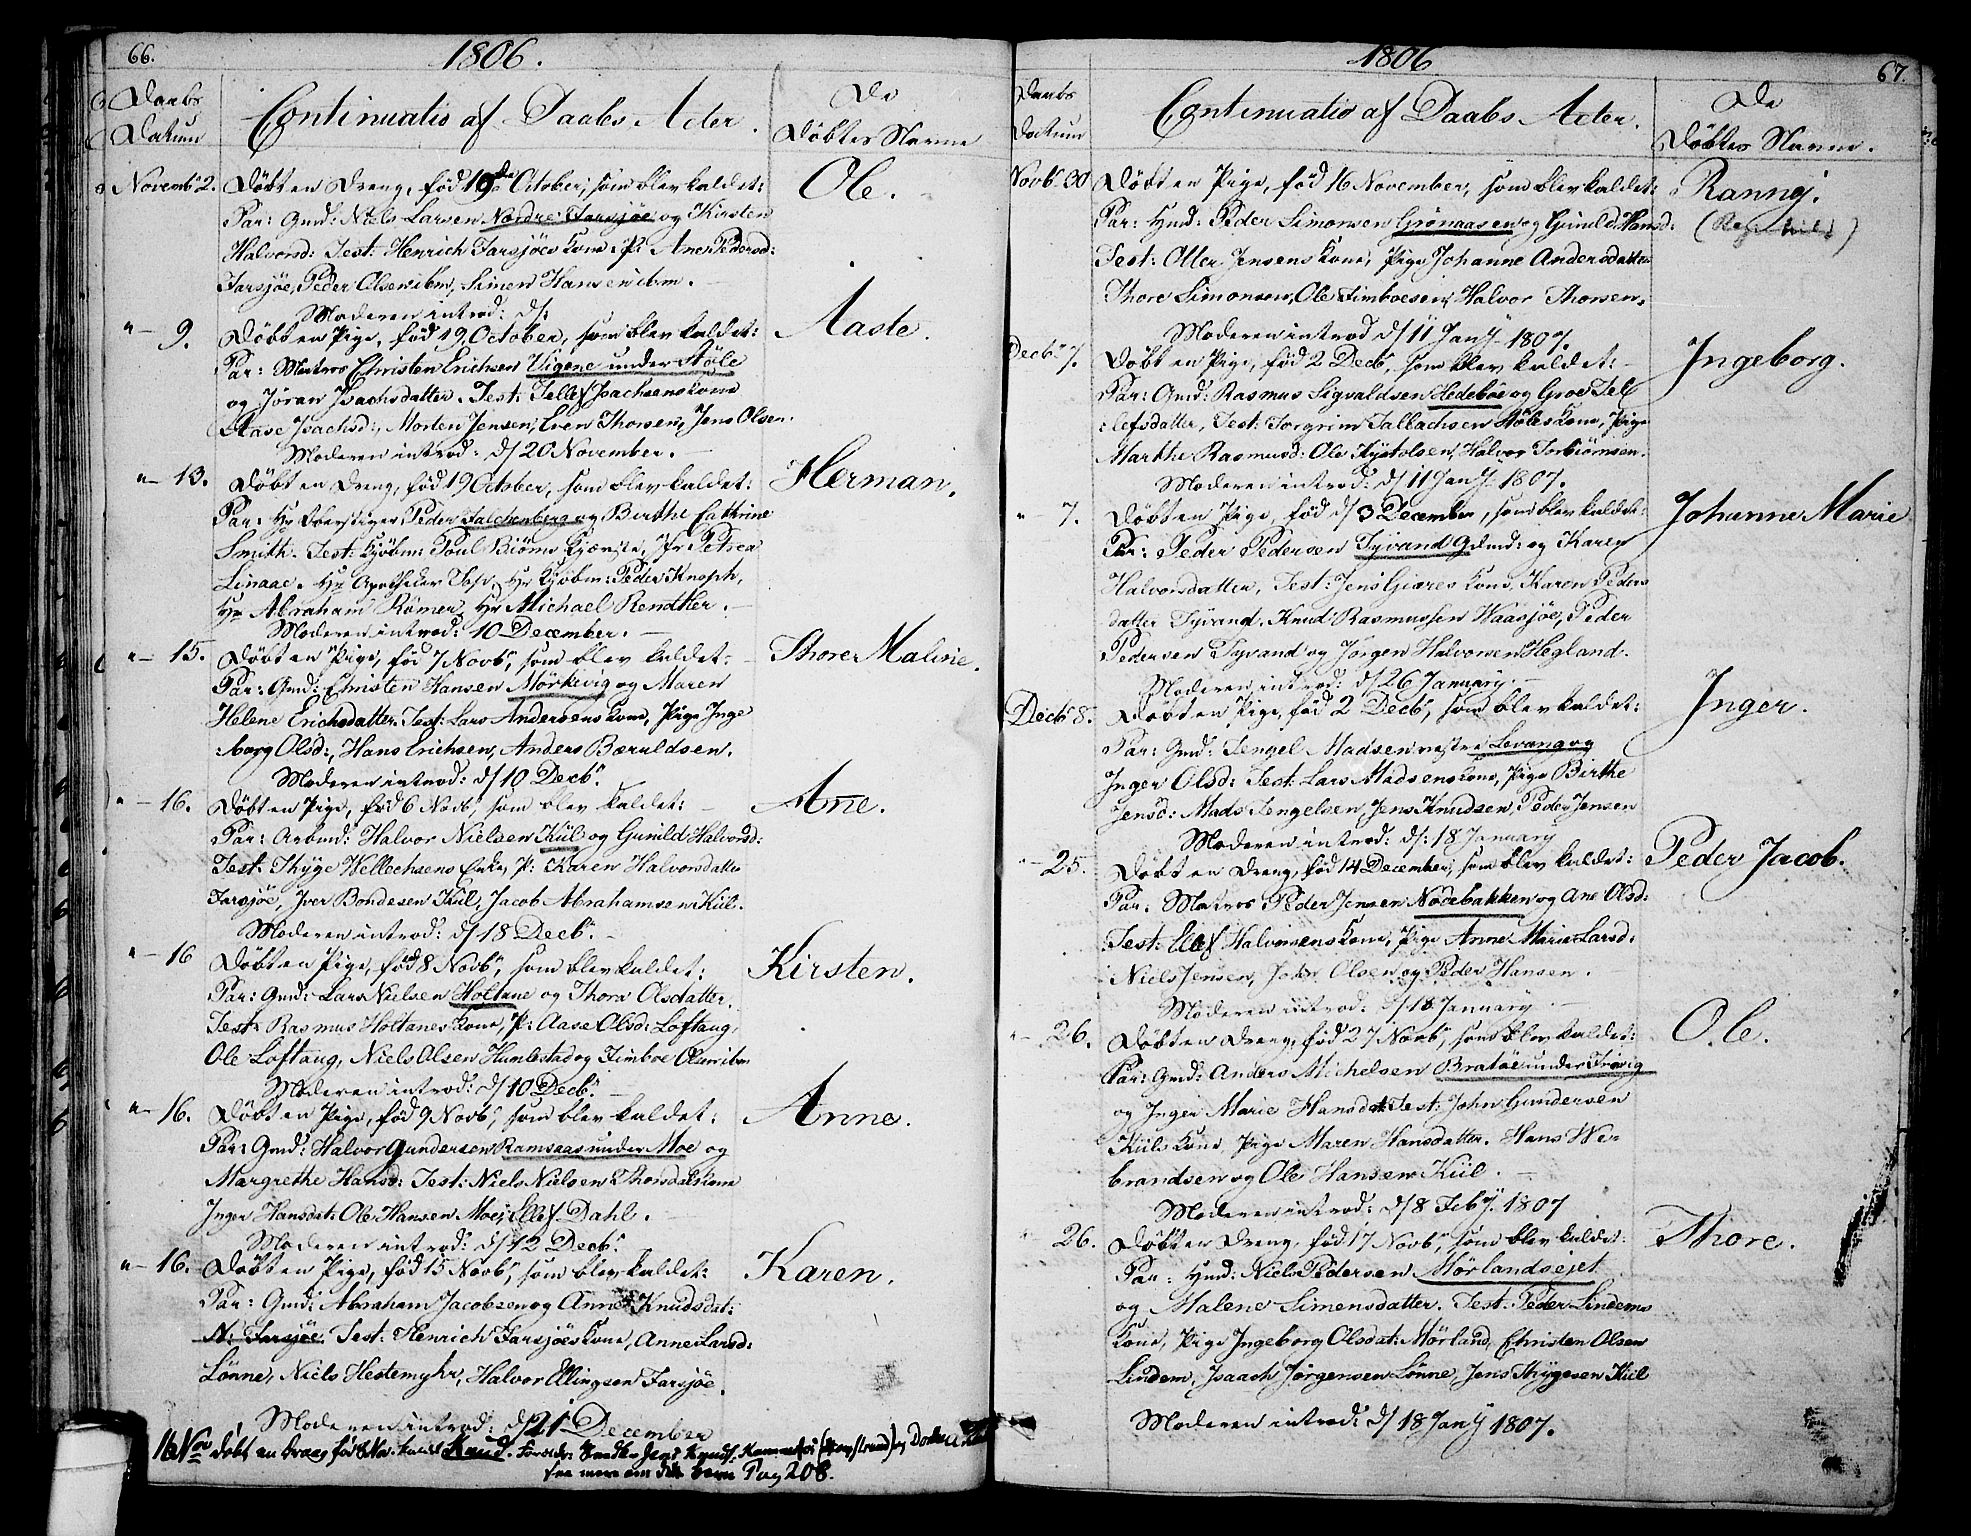 66.
1806.
Daabs
Datum
Continuatio af Daabs Acter.
De
Döbtes Navne
Novemb 2. Döbt en Dreng, fød 19de October, som blev kaldet: Ole.
Par: Gmd: Niels Larsen Nordre Farsjøe og Kirsten
Halvorsd: Test: Henrich Farsjøes Kone: P: Anne Pedersd:
Farsjøe, Peder Olsen ibm, Simen Hansen ibm.
Moderen introd: d/:
" 9. Döbt en Pige, fød 19 October, som blev kaldet: Aaste.
Par: Matros Christen Erichsen Vigene under Støle
og Jøran Isachsdatter. Test: Tellef Isachsens Kone
Aase Isachsd:, Morten Jensen, Even Thorsen, Jens Olsen.
Moderen introd: d/ 20 November.
" 13. Döbt en Dreng, fød 19 October, som blev kaldet: Herman.
Par: Hr Peder Falchenberg og Birthe Cathrine
Smith. Test: Kjøbm: Poul Biørns Kjæreste, Jfr Petrea
Linaae. Hr Apotheker Hr Kjøbm: Peder Knoph,
Hr Abraham Römer, Hr Michael Rendtler.
Moderen introd: 10 December.
" 15. Döbt en Pige, fød 7 Novb, som blev kaldet: Thore Maline.
Par: Gmd: Christen Hansen Mørkevig og Maren
Helene Erichsdatter. Test: Lars Andersens Kone, Pige Inge
:borg Olsd:, Hans Erichsen, Anders Bæruldsen.
Moderen introd: d/ 10 Decb.
" 16. Döbt en Pige, fød 6 Novb, som blev kaldet: Ane.
Par: Arbmd: Halvor Nielsen Kiil og Gunild Halvorsd:
Test: Thyge Wellechsens Enke, P: Karen Halvorsdatter
Farsjøe, Iver Bondesen Kiil, Jacob Abrahamsen Kiil.
Moderen introd: d/ 18 Decb.
" 16 Döbt en Pige, fød 8 Novb, som blev kaldet: Kirsten.
Par: Gmd: Lars Nielsen Holtane og Thora Olsdatter.
Test: Rasmus Holtanes Kone, P: Aase Olsd: Loftaug,
Ole Loftaug, Niels Olsen Humlestad og Timboe Olsen ibm
Moderen introd: d/ 10 Decb.
" 16. Döbt en Pige, fød 9 Novb, som blev kaldet: Anne.
Par: Gmd: Halvor Gundersen Ramsaas under Moe og
Margrethe Hansd: Test: Niels Nielsen Thorsdals Kone
Inger Hansdat: Ole Hansen Moe, Ellef Dahl.
Moderen introd: d/ 12 Decb.
" 16. Döbt en Pige, fød 15 Novb, som blev kaldet: Karen.
Par: Gmd: Abraham Jacobsen og Anne Knudsdat:
N: Farsjøe. Test: Henrich Farsjøes Kone, Anne Larsd:
Lönne, Niels Hestemyhr, Halvor Ellingsen Farsjøe.
Moderen introd: d/ 21 December
16 Nov døbt en Dreng født Nov. kaldt Knud.
see mere om dette Barn Pag 208.
1806
67.
Daabs
Datum
Continuatio af Daabs Acter.
De
Döbtes Navne.
Novb. 30 Döbt en Pige, fød 16 November, som blev kaldet: Rannej.
Par: Hmd: Peder Simonsen Grønaasen og Gunild Hansd: (Regnhild)
Test: Otter Jensens Kone, Pige Johanne Andersdatter
Thore Simonsen, Ole Timboesen, Halvor Thorsen.
Moderen introd d/ 11 Janj. 1807.
Decb. 7. Döbt en Pige, fød 2 Decb, som blev kaldet: Ingeborg.
Par: Gmd: Rasmus Sigvaldsen Hedebøe og Groe Tel
:lefsdatter, Test: Torgrim Tallachsen Støles Kone, Pige
Marthe Rasmusd: Ole Kystolsen, Halvor Torbiörnsen.
Moderen introd: d/ 11 Janj. 1807.
" 7. Döbt en Pige, fød d/ 3 December, som blev kaldet: Johanne Marie
Par: Peder Pedersen Tyvand Gmd: og Karen
Halvorsdatter, Test: Jens Giæres Kone, Karen Peders
datter Tyvand. Knud Rasmussen Waasjøe, Peder
Pedersen Tyvand og Jørgen Halvorsen Hegland.
Moderen introd: d/ 26 January.
Decb 8. Döbt en Pige, fød 2 Decb, som blev kaldet: Inger.
Par: Gmd: Tengel Madsen vestre Levang og
Inger Olsd: Test: Lars Madsens Kone, Pige Birthe
Jensd: Mads Tengelsen, Jens Knudsen, Peder Jensen
Moderen introd: d/: 18 January
" 25. Döbt en Dreng, fød 14 December, som blev kaldet: Peder Jacob.
Par: Matros Peder Jensen Nødebakken og Ane Olsd:
Test: Ellef Halvorsens Kone, Pige Anne Marie Larsd:
Niels Jensen, John Olsen og Peder Hansen.
Moderen introd: d/ 18 January
" 26. Döbt en Dreng, fød 27 Novb, som blev kaldet: Ole.
Par: Gmd: Anders Michelsen Bratøe under
og Inger Marie Hansdat: Test: John Gundersen
Kiils Kone, Pige Maren Hansdatter. Hans We-
brandsen og Ole Hansen Kiil.
Moderen introd: d/ 8 Febj. 1807
" 26. Döbt en Dreng, fød 17 Novb, som blev kaldet: Thore.
Par: Hmd: Niels Pedersen Mørlandsejet
og Malene Simensdatter. Test: Peder Lindems
Kone, Pige Ingeborg Olsdat: Mørland, Christen Olsen
Lindem, Isaach Jørgensen Lönne, Jens Thygesen Kiil
Moderen introd: d/ 18 Janij 1807.